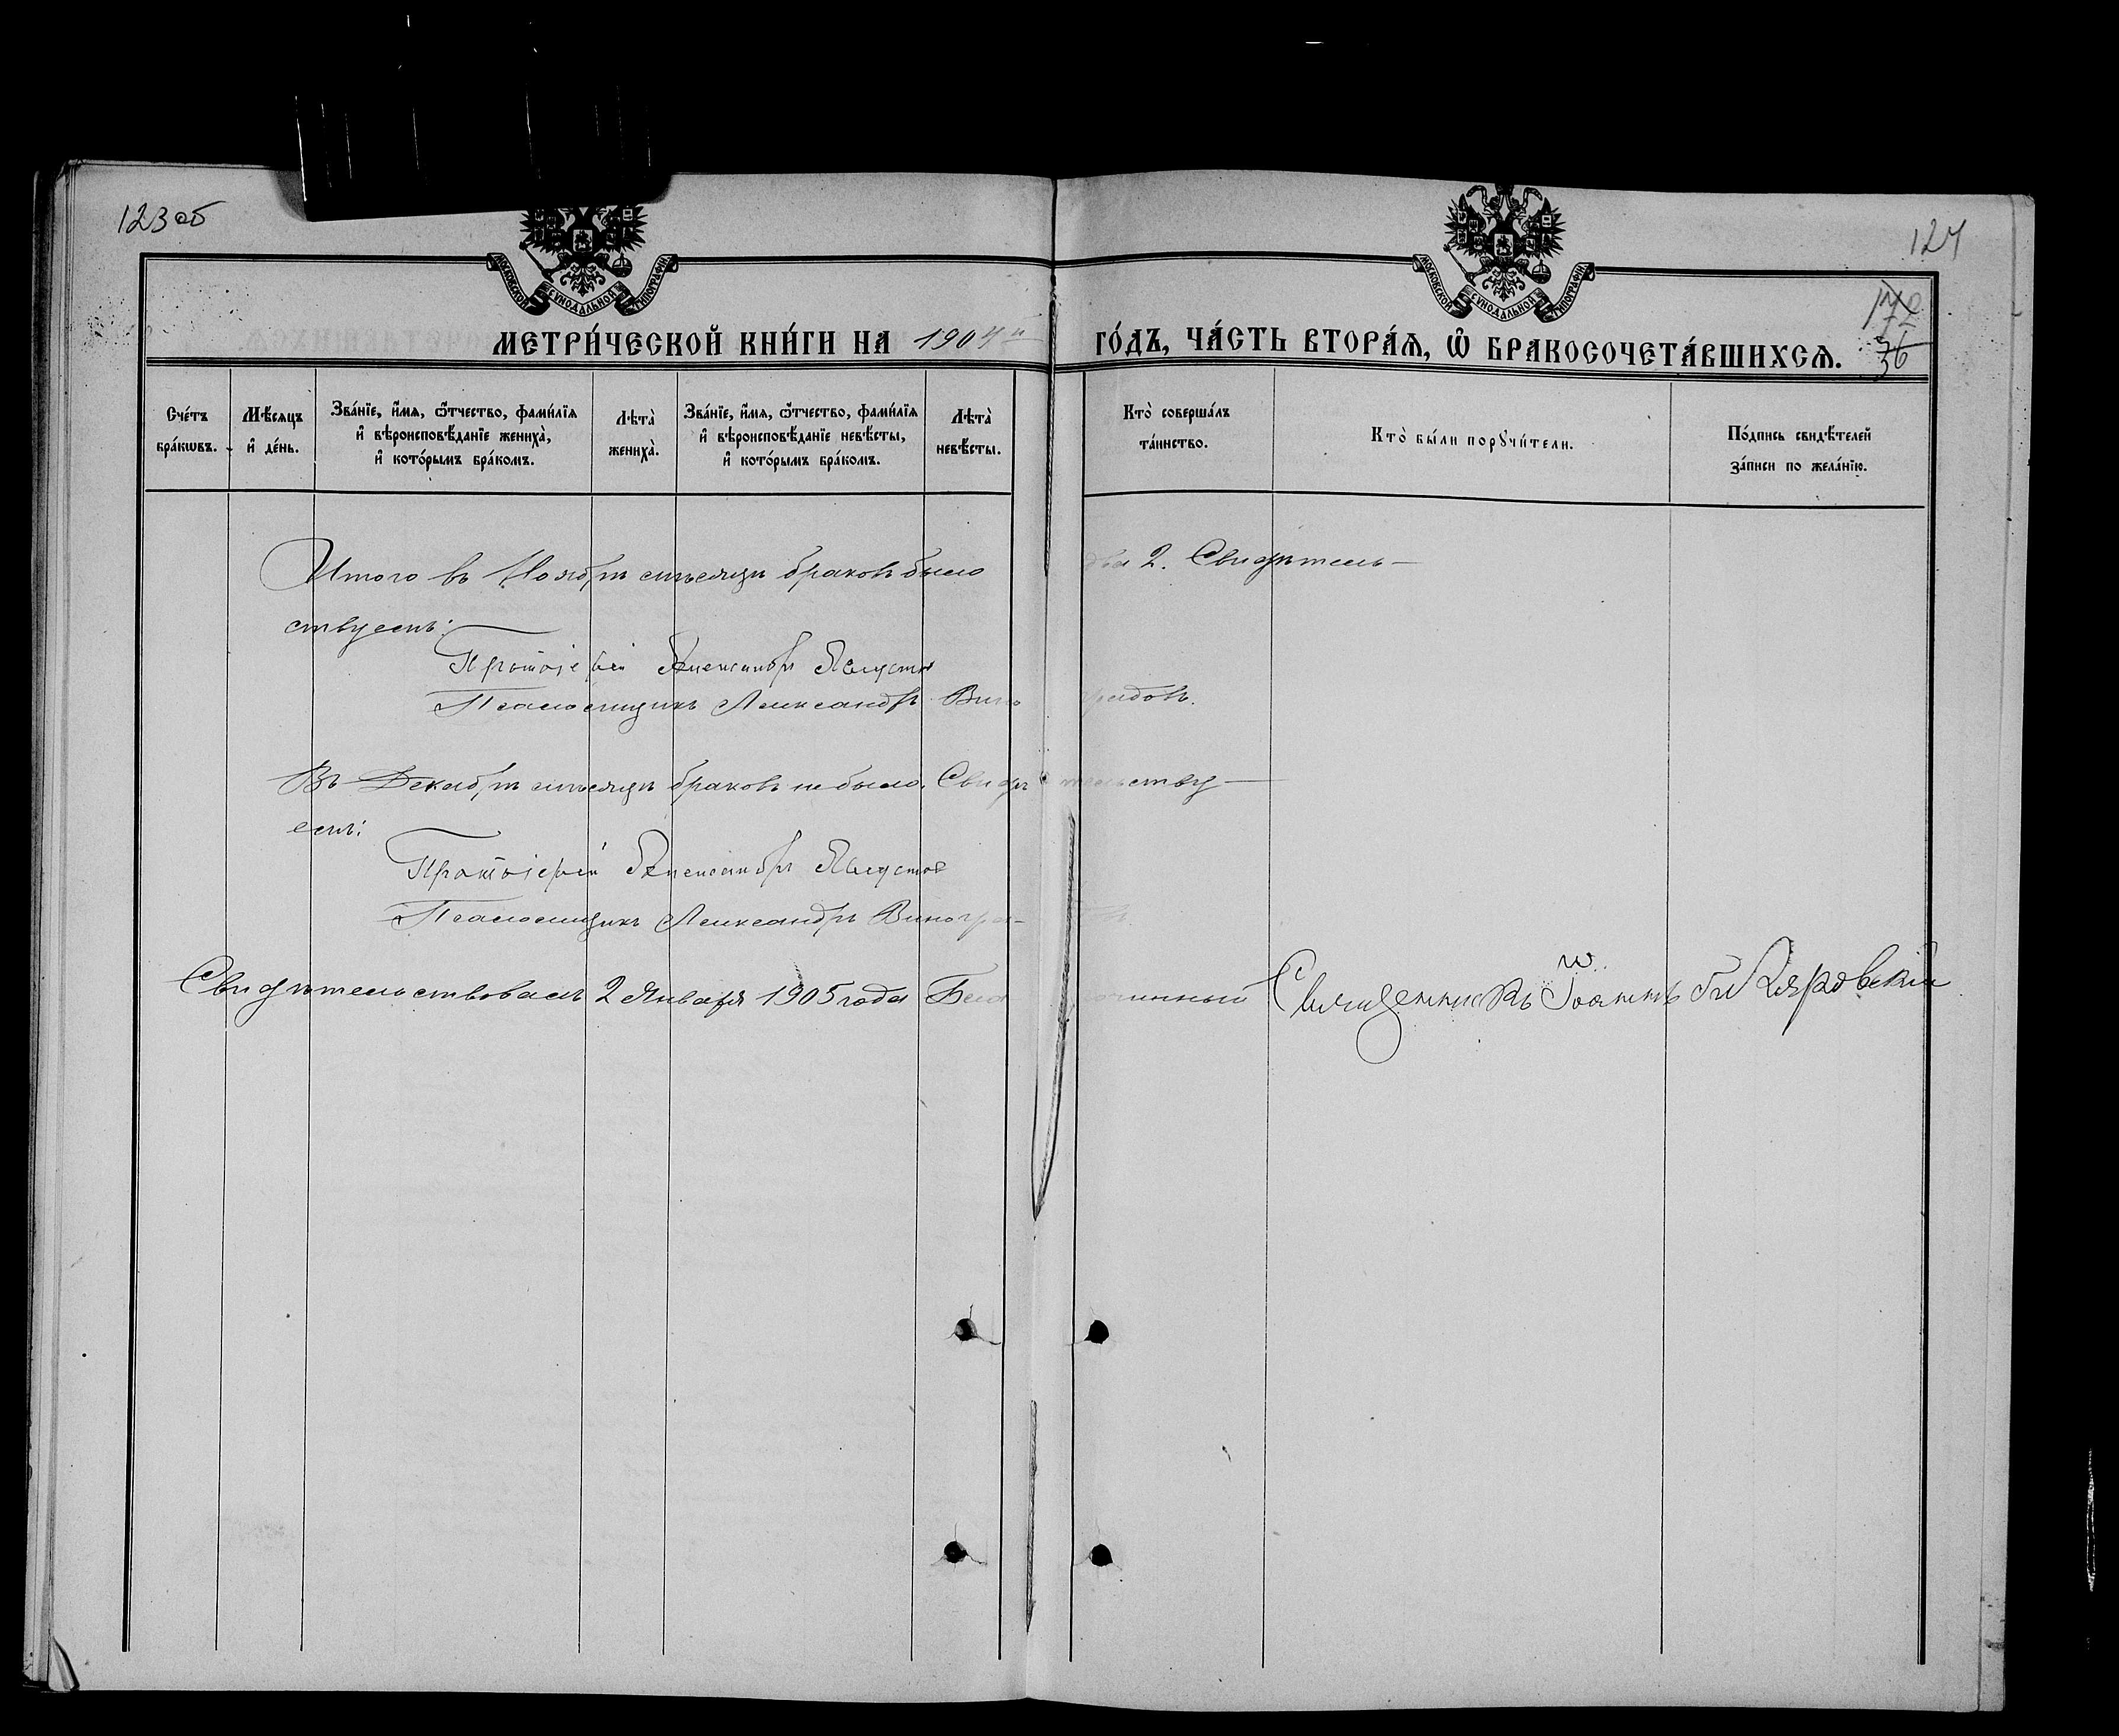 123 об
124
МОСКОВСКОЙ СѴНОДАЛЬНОЙ ТИПОГРАФІИ
МОСКОВСКОЙ СѴНОДАЛЬНОЙ ТИПОГРАФІИ
МЕТРИ́ЧЕСКОЙ КНИ́ГИ НА 1904й ГО́ДЪ, ЧА́СТЬ ВТОРА́Ѧ, Ѡ҆ БРАКОСОЧЕТА́ВШИХСѦ.
36
Сче́тъ бра́кѡвъ.
Мѣ́сяцъ и҆ де́нь.
Зва́нїе, и҆́мѧ, ѻ҆́тчество, фами́лїѧ и҆ вѣроисповѣ́данїе жениха̀, и҆ кото́рымъ бра́комъ.
Лѣта̀ жениха̀.
Зва́нїе, и҆́мѧ, ѻ҆́тчество, фами́лїѧ и҆ вѣроисповѣ́данїе невѣ́сты, и҆ кото́рымъ бра́комъ.
Лѣта̀ невѣ́сты.
Кто̀ соверша́лъ та́инство.
Кто̀ бы́ли порꙋчи́тели.
По́дпись свидѣ́телей за́писи по жела́нїю.
Итого въ Ноябрѣ мѣсяцѣ браковъ было два 2. Свидѣтель-
ствуемъ:
Протоіерей Александръ Августов
Псаломщикъ Александръ Виноградовъ.
Въ Декабрѣ мѣсяцѣ браковъ не было. Свидѣтельству-
емъ:
Протоіерей Александръ Августов
Псаломщикъ Александръ Виногра-
Свидѣтельствовалъ 2 Января 1905 года Благочинный Священникъ Іоаннъ